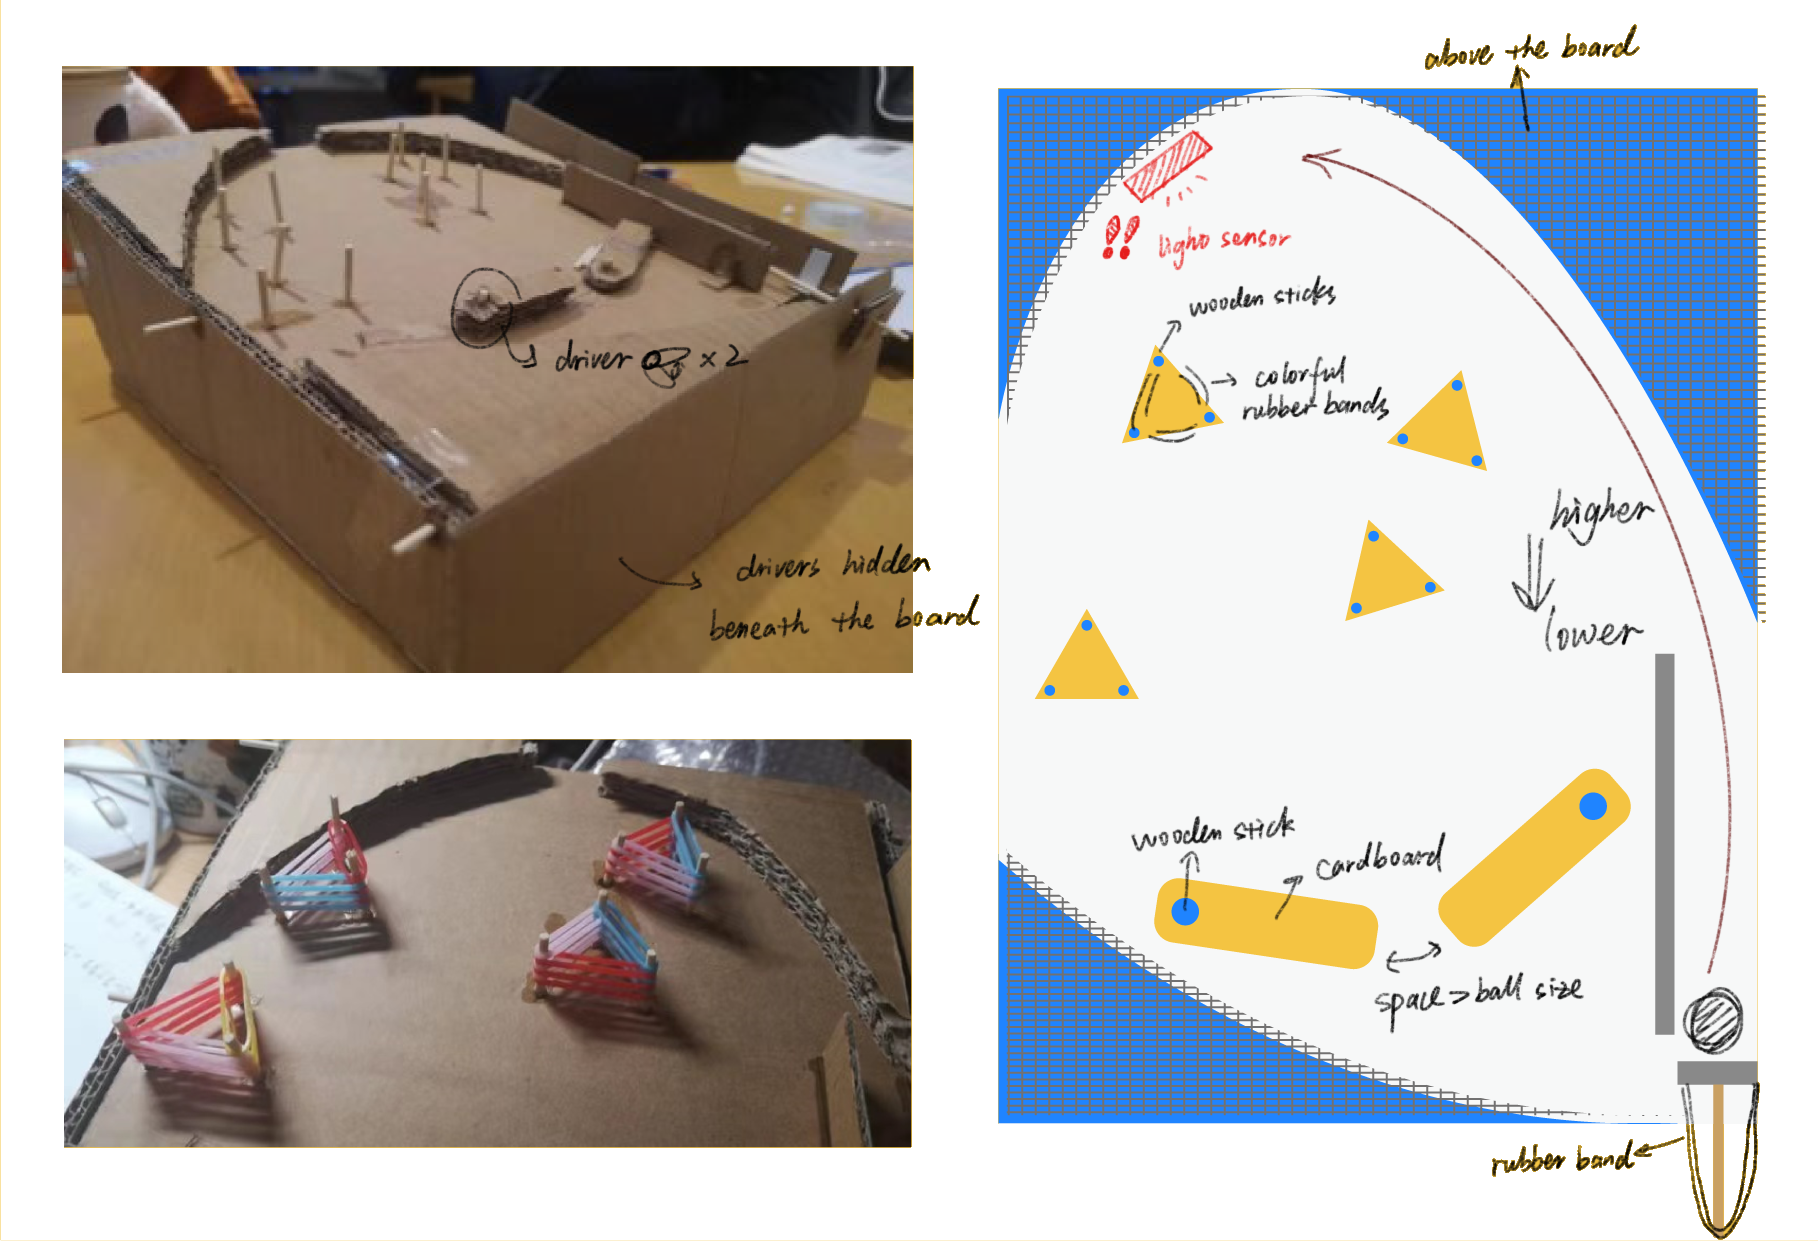 driver × 2
drivers hidden
beneath the board
above the board
!!
ligho sensor
wooden sticks
colorful
rubber bands
higher
lower
wooden stick
cardboard
space > ball size
rubber band